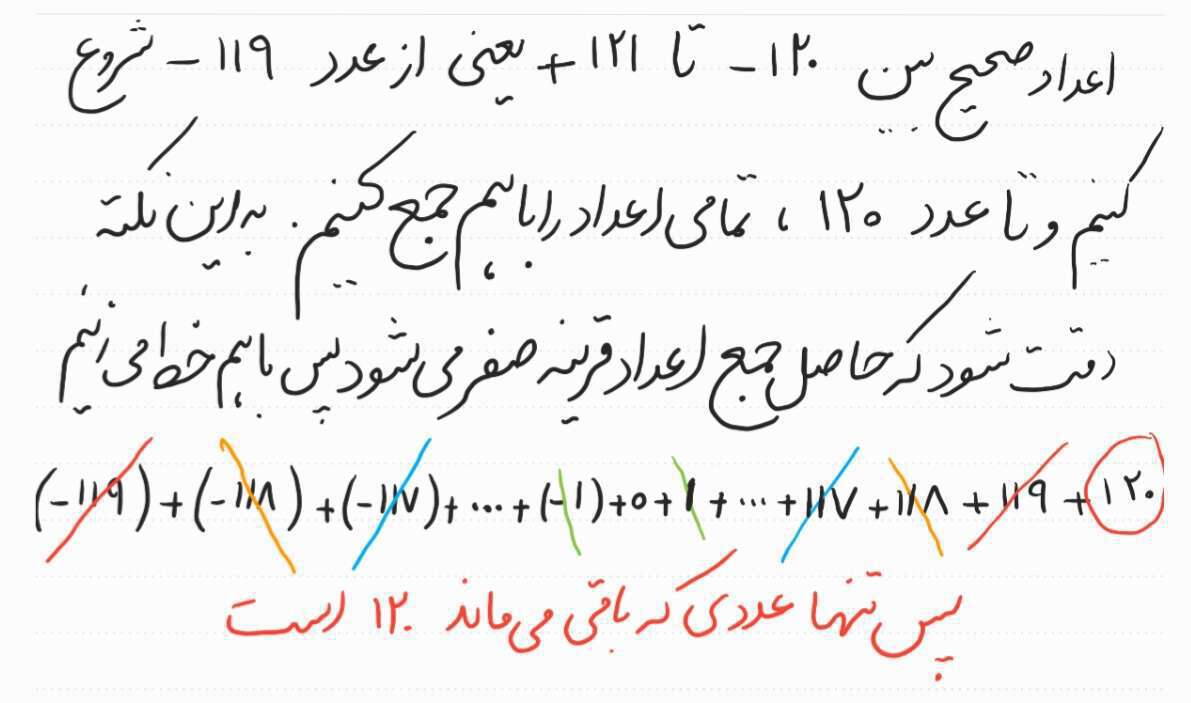 اعداد صحیح بین ۱۲۰ - تا ۱۲۱ + یعنی از عدد ۱۱۹ - شروع
کنیم و تا عدد ۱۲۰ ، تمامی اعداد را با هم جمع کنیم. به این نکته
دقت شود که حاصل جمع اعداد قرینه صفر می‌شود پس با هم خط می‌زنیم
(-۱۱۹) + (-۱۱۸) + (-۱۱۷) + ... + (-۱) + ۰ + ۱ + ... + ۱۱۷ + ۱۱۸ + ۱۱۹ + ۱۲۰
پس تنها عددی که باقی می‌ماند ۱۲۰ است